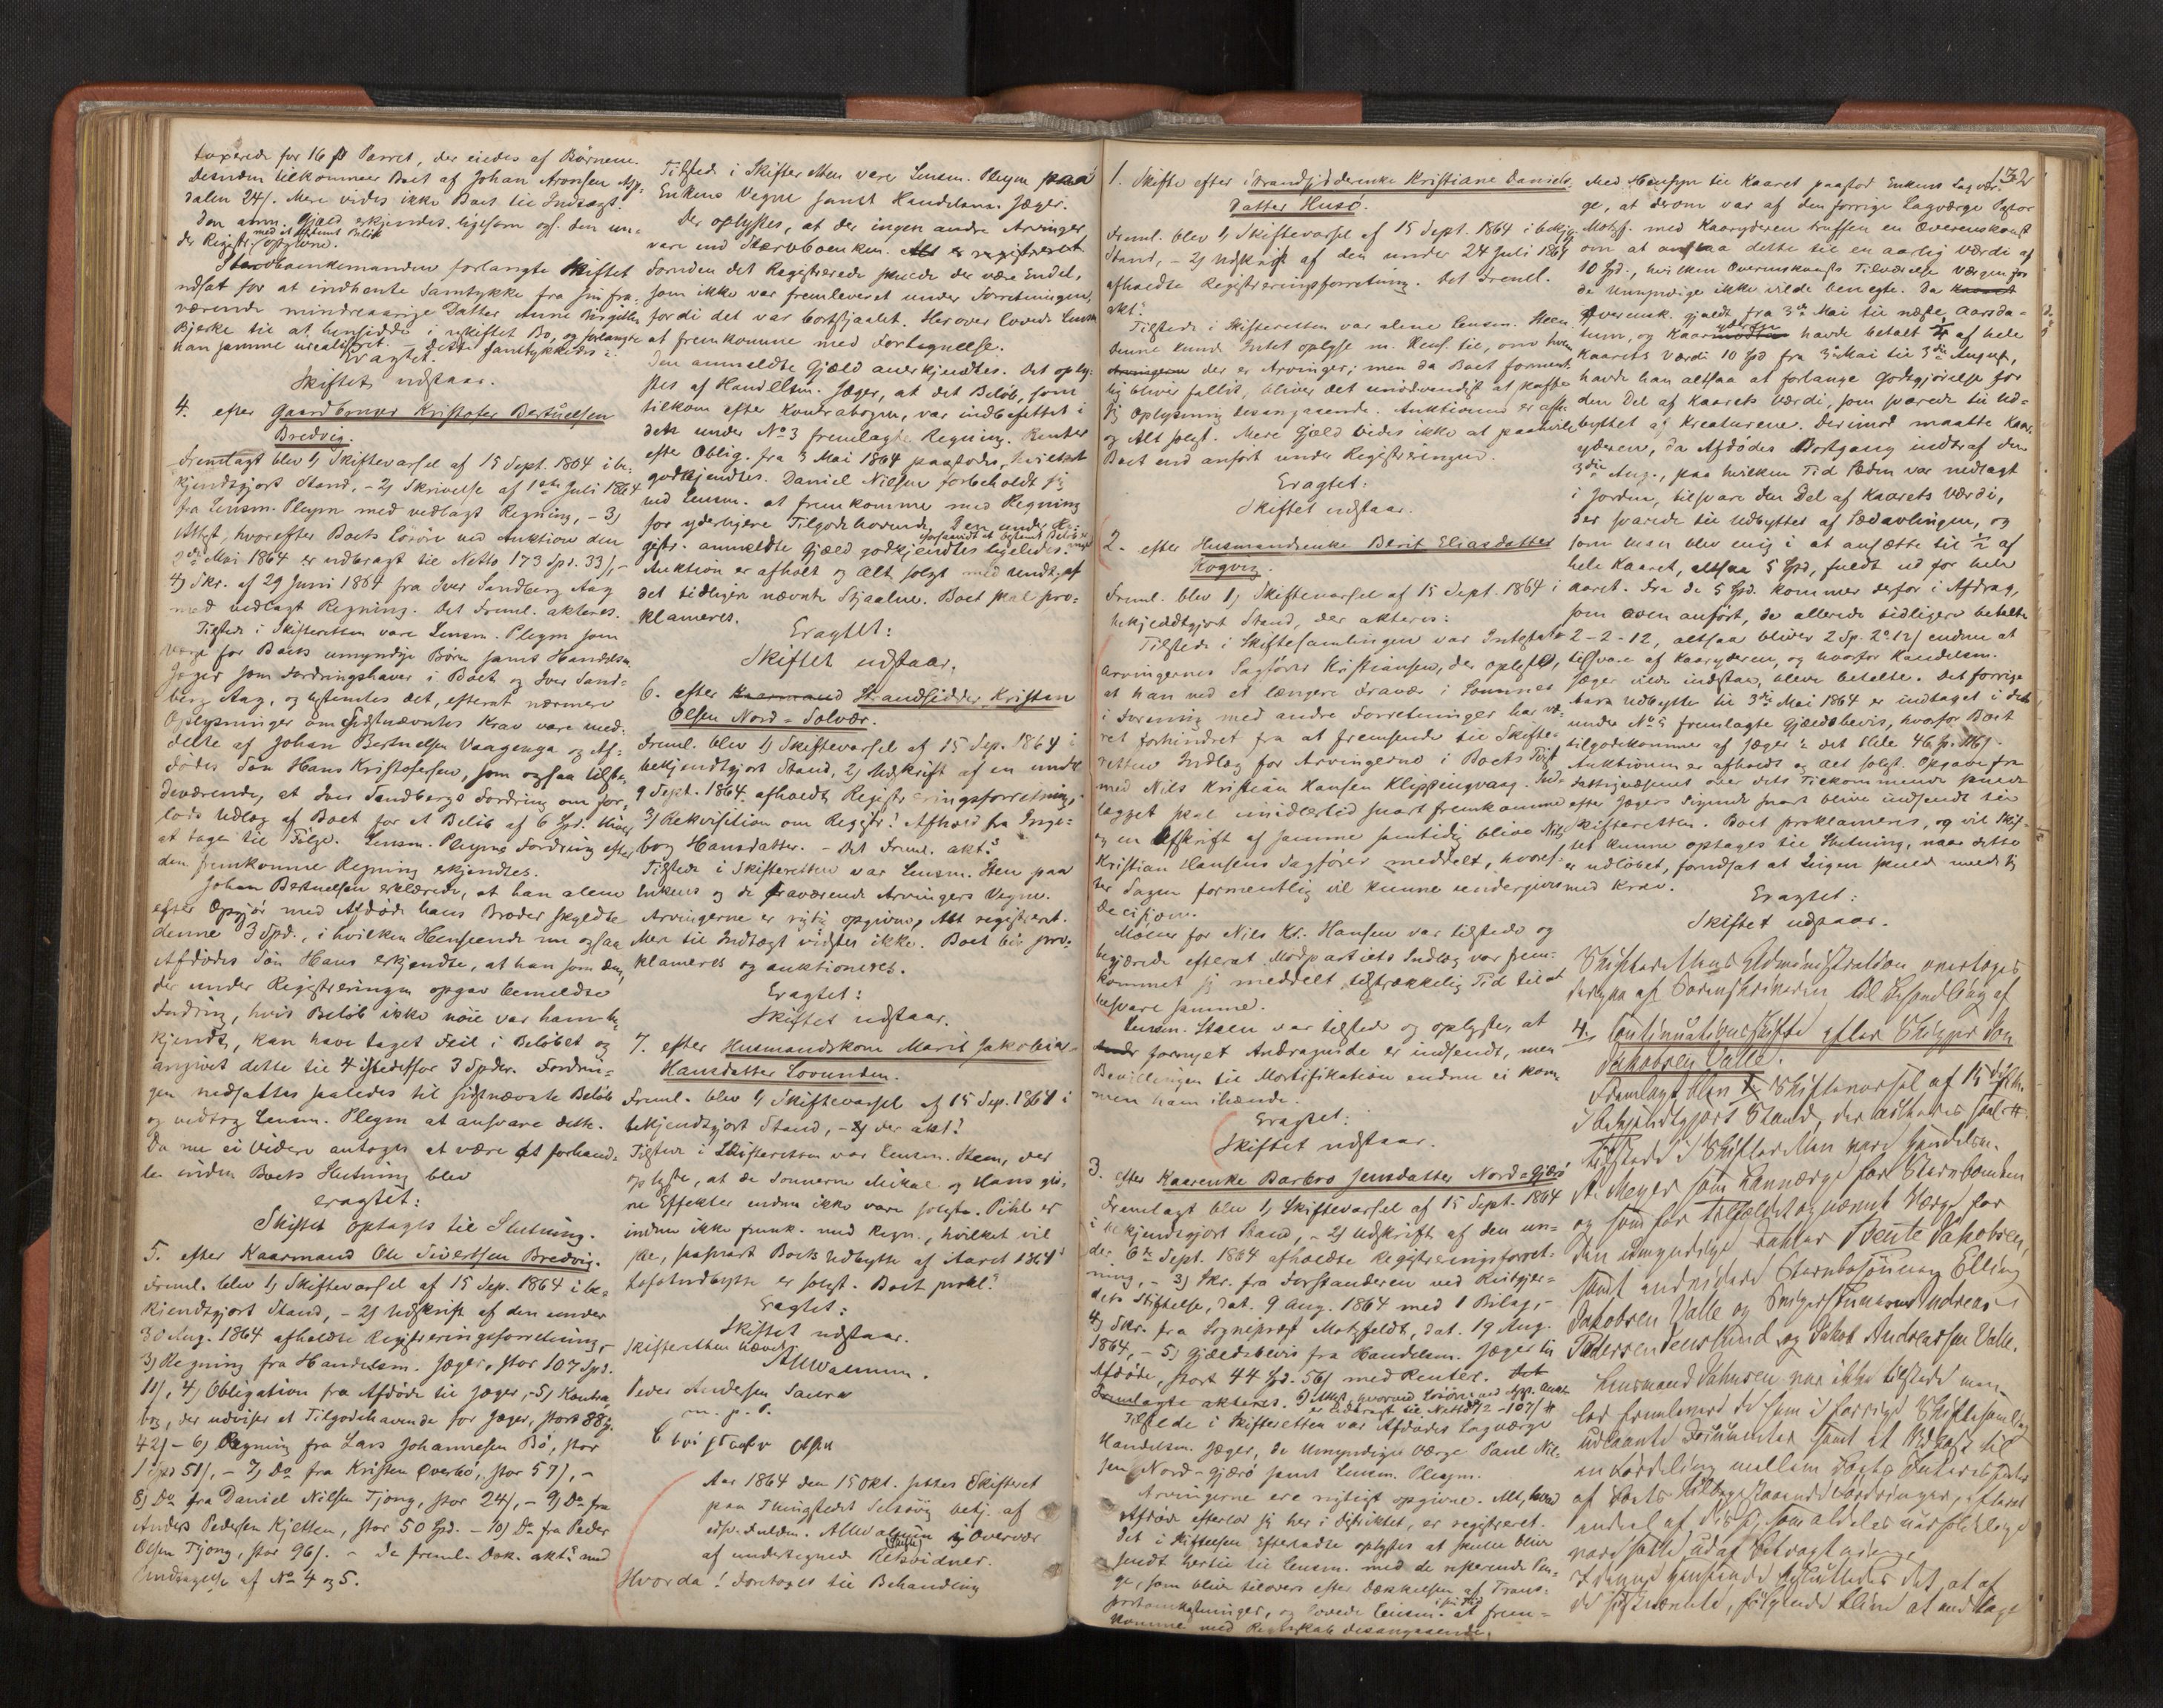 taxerede for 16 ß Parret, der eiedes af Børnene.
Desuden tilkommer Boet af Johan Aronsen
dalen 24/. Mere vides ikke Boet til Indtægt.
Den anm. Gjæld erkjendes, ligesom ogs. den un-
der Registr. med et bestemt Beløb opgivne.
Stervboenkemanden forlangte Skiftet
udsat for at indhente Samtykke fra sin fra-
værende mindreaarige Datter Anne Birgitte
Bjerke til at hensidde i uskiftet Bo, og forlangte
han samme urealiseret. - Dette samtykkedes:
Eragtet:
Skiftet udstaar.
4. efter Gaardbruger Kristofer Bertuelsen
Bredvig.
Fremlagt blev 1/ Skiftevarsel af 15 Sept. 1864 i be-
kjendtgjort Stand, - 2/ Skrivelse af 1ste Juli 1864
fra Lensm. Pleym med vedlagt Regning, - 3/
Attest, hvorefter Boets Løsøre ved Auktion den
2den Mai 1864 er udbragt til Netto 173 Spd. 33/, -
4/ Skr. af 29 Juni 1864 fra Iver Sandberg Aag
med vedlagt Regning. Det Freml. akteres.
Tilstede i Skifteretten vare Lensm. Pleym som
Værge for Boets umyndige Børn samt Handelsm.
Jæger som Fordringshaver i Boet og Iver Sand-
berg Aag, og bestemtes det, efterat nærmere
Oplysninger om Sidstnævntes Krav vare med-
delte af Johan Bertuelsen Vaagenga og Af-
dødes Søn Hans Kristofersen, som ogsaa tilste-
deværende, at Iver Sandbergs Fordring om for-
lods Udlæg af Boet for et Beløb af 6 Spd. bliver
at tage til Følge. Lensm. Pleyms Fordring efter
den fremkomne Regning erkjendtes.
Johan Bertuelsen erklærede, at han alene
efter Opgjør med Afdøde hans Broder skyldte
denne 3 Spd., i hvilken Henseende nu ogsaa
Afdødes Søn Hans erkjendte, at han som den,
der under Registreringen opgav bemeldte
Fordring, hvis Beløb ikke nøie var ham be-
kjendt, kan have taget Feil i Beløbet og
angivet dette til 4 istedetfor 3 Spdr. Fordrin-
gen nedsattes saaledes til sidstnævnte Beløb
og vedtog Lensm. Pleym at ansvare dette.
Da nu ei videre antoges at være at forhand-
le inden Boets Slutning blev
eragtet:
Skiftet optages til Slutning.
5. efter Kaarmand Ole Sivertsen Bredvig.
Freml. blev 1/ Skiftevarsel af 15 Sep. 1864 i be-
kjendtgjort Stand, - 2/ Udskrift af den under
30 Aug. 1864 afholdte Registreringsforretning, -
3/ Regning fra Handelsm. Jæger, stor 107 Spd.
11/, 4/ Obligation fra Afdøde til Jæger, - 5/ Kontra-
bog, der udviser et Tilgodehavende for Jæger, stort 88
42/ - 6/ Regning fra Lars Johannesen Bø, stor
1 Spd 51/, - 7/ Do fra Kristen Øverbø, stor 57/, -
8/ Do fra Daniel Nilsen Tjong, stor 24/, - 9/ Do fra
Anders Pedersen Kjelten, stor 50 Spd. - 10/ Do fra Peder
Olsen Tjong, stor 96/. - De freml. Dok. akt. med
Undtagelse af No 4 og 5.
Tilstede i Skifteretten vare Lensm. Pleym paa
Enkens Vegne samt Handelsm. Jæger.
Der oplystes, at der ingen andre Arvinger
vare end Stervboenken. Alt er registreret.
Foruden det Registrerede skulde der være Endel,
som ikke var fremleveret under Forretningen,
fordi det var bortstjaalet. Herover lovede Lensm
at fremkomme med Fortegnelse.
Den anmeldte Gjæld anerkjendtes. Det oply-
stes af Handelsm. Jæger, at det Beløb, som
tilkom efter Kontrabogen, var indbefattet i
dets under No 3 fremlagte Regning. Renter
efter Oblig. fra 3 Mai 1864 paastodes, hvilket
godkjendtes. Daniel Nilsen forbeholdt sig
ved Lensm. at fremkomme med Regning
for yderligere Tilgodehavende. Den under Re-
gistr. anmeldte Gjæld, forsaavidt et bestemt Beløb, godkjendtes ligeledes.
Auktion er afholdt og Alt solgt med Undt. af
det tidligere nævnte Stjaalne. Boet skal pro-
klameres.
Eragtet:
Skiftet udstaar.
6. efter Kaarmand Strandsidder Kristen
Olsen Nord-Solvær.
Freml. blev 1/ Skiftevarsel af 15 Sep. 1864 i
bekjendtgjort Stand, 2/ Udskrift af en under
9 Sept. 1864 afholdt Registreringsforretning,
3/ Rekvisition om Registr. Afhold fra Inge-
borg Hansdatter. - Det Freml. akt.
Tilstede i Skifteretten var Lensm. Steen paa
Enkens og de fraværende Arvingers Vegne.
Arvingerne er rigtig opgivne, Alt registreret.
Mere til Indtægt vidstes ikke. Boet bør pro-
klameres og auktioneres.
Eragtet:
Skiftet udstaar.
7. efter Husmandskone Marit Jakobine
Hansdatter Lovunden.
Freml. blev 1/ Skiftevarsel af 15 Sep. 1864 i
bekjendtgjort Stand, - der akt.
Tilstede i Skifteretten var Lensm. Steen, der
oplyste, at de Sønnerne Mikal og Hans giv-
ne Effekter endnu ikke vare solgte. Pihl er
endnu ikke fremk. med Regn., hvilket vil
ske, saasnart Boets Udbytte af Aaret 1864
Lofotudbytte er solgt. Boet prokl.
Eragtet:
Skiftet udstaar.
Skifteretten hævet
AWalnum.
Peder Andersen Saura
m. p. P.
Kristofer Olsen
Aar 1864 den 15 Okt. sattes Skifteret
paa Thingstedet Selsøvig betj. af
edsv. Fuldm. AWalnum og Overvær
af undertegnede (Skifte) Retsvidner.
Hvorda! Foretoges til Behandling
132
1. Skifte efter Strandsidderenke Kristiane Daniels-
datter Husø.
Freml. blev 1/ Skiftevarsel af 15 Sept. 1864 i bekjg.
Stand, - 2/ Udskrift af den under 24 Juli 1864
afholdte Registreringsforretning. Det Freml.
akt.
Tilstede i Skifteretten var alene Lensm. Steen.
Denne kunde Intet oplyse m. Hens. til, om hvem
der er Arvinger; men da Boet forment-
lig bliver fallit, bliver det unødvendigt at skaffe
sig Oplysning desangaaende. Auktionen er afh.
og Alt solgt. Mere Gjæld vides ikke at paahvile
Boet end anført under Registreringen.
Eragtet:
Skiftet udstaar.
2. efter Husmandsenke Berit Eliasdatter
Kogvig.
Freml. blev 1/ Skiftevarsel af 15 Sept. 1864 i
bekjendtgjort Stand, der akteres:
Tilstede i Skiftesamlingen var Intestat-
arvingernes Sagfører Kristiansen, der oplyste,
at han ved et længere Fravær i Sommer
i Forening med andre Forretninger har væ-
ret forhindret fra at fremsende til Skifte-
retten Indlæg for Arvingerne i Boets Tvist
med Nils Kristian Hansen Klippingvaag. Ind-
lægget skal imidlertid snart fremkomme
og en Afskrift af samme samtidig blive Nils
Kristian Hansens Sagfører meddelt, hvoref-
ter Sagen formentlig vil kunne undergives
Decision.
Møller for Nils Kr. Hansen var tilstede og
begjærede efterat Modpartiets Indlæg var frem-
kommet sig meddelt tilstrækkelig Tid til at
besvare samme.
Lensm. Steen var tilstede og oplyste, at
fornyet Andragende er indsendt, men
Bevillingen til Mortifikation endnu ei kom-
men ham ihænde.
Eragtet:
Skiftet udstaar.
3. efter Kaarenke Barbro Jensdatter Nord-Gjærø
Fremlagt blev 1/ Skiftevarsel af 15 Sept. 1864
i bekjendtgjort Stand, - 2/ Udskrift af den un-
der 6te Sept. 1864 afholdte Registreringsforret-
ning, - 3/ Skr. fra Forstanderen ved Reitgjer-
dets Stiftelse, dat. 9 Aug. 1864 med 1 Bilag, -
4/ Skr. fra Sogneprest Motzfeldt, dat. 19 Aug.
1864, - 5/ Gjældsbevis fra Handelsm. Jæger til
Afdøde, stort 44 Spd. 56/ med Renter.
Fremlagte akteres.
Tilstede i Skifteretten var Afdødes Lagværge
Handelsm. Jæger, de Umyndiges Værge Paul Nil-
sen Nord-Gjærø samt Lensm. Pleym.
Arvingerne ere rigtigt opgivne. Alt, hvad
Afdøde efterlod sig her i Distriktet, er registreret.
Det i Stiftelsen Efterladte oplystes at skulle blive
sendt hertil til Lensm. med de resterende Pen-
ge, som blive tilovers efter Dækkelsen af Trans-
portomkostninger, og lovede Lensm. i sin Tid at frem-
komme med Regnskab desangaaende.
Med Hensyn til Kaaret paastod Enkens Lagvær-
ge, at derom var af den forrige Lagværge Pastor
Motzf. med Kaaryderen truffen en Overenskomst
om at ansaa dette til en aarlig Værdi af
10 Spd., hvilken Overenskomsts Tilværelse Værgen for
de Umyndige ikke vilde benegte. Da
Overensk. gjaldt fra 3die Mai til næste Aarsda-
tum, og Kaaryderen havde betalt 1/4 af hele
Kaarets Værdi 10 Spd fra 3die Mai til 3die August,
havde han altsaa at forlange Godtgjørelse for
den Del af Kaarets Værdi, som svarede til Ud-
byttet af Kreaturene. Derimod maatte Kaar-
yderen, da Afdødes Bortgang indtraf den
3die Aug., paa hvilken Tid Sæden var nedlagt
i Jorden, tilsvare den Del af Kaarets Værdi,
der svarede til Udbyttet af Sædavlingen, og
som man blev enig i at ansætte til 1/2 af
hele Kaaret, altsaa 5 Spd, fuldt ud for hele
aaret. Fra de 5 Spd. kommer derfor i Afdrag,
som oven anført, de allerede tidligere betalte
2-2-12, altsaa bliver 2 Sp. 2 12/ endnu at
tilsvare af Kaaryderen, og hvorfor Handelsm.
Jæger vilde indstaa, bleve betalte. Det forrige
Aars Udbytte til 3die Mai 1864 er indtaget i det
under No 5 fremlagte Gjældsbevis, hvorfor Boet
tilgodekommer af Jæger
Auktionen er afholdt og Alt solgt. Opgave fra
Fattigvæsenet over dets Tilkommende skulde
efter Jægers Sigende snart blive indsendt til
Skifteretten. Boet proklameres, og vil Skif-
tet kunne optages til Slutning, naar dette
er udløbet, forudsat at Ingen skulde melde sig
med Krav.
Eragtet:
Skiftet udstaar.
Skifterettens Administration overtoges
derpaa af Sorenskriveren til Behandling af
4. Continuationsskifte efter Skipper Jon
Jakobsen Valle.
Fremlagt blev Skiftevarsel af 15 Septbr.
i bekjendtgjort Stand, der akteres
Tilstede i Skifteretten vare Handelsm.
A. Meyer som Lauværge for Stervboenken
og som for Tilfældet opnævnt Værge for
den umyndige Datter Bente Jakobsen,
samt endvidere Stervbosønnen Elling
Jakobsen Valle og Svigersønnerne Andreas
Pedersen Tenskind og Jakob Andreassen Valle.
Lensmand Johnsen var ikke tilstede men
lod fremlevere de ham i forrige Skiftesamling
udlaante Documenter samt et Udkast til
en Fordeling mellem Boets Interessenter
af Boets tilbagestaaende Fordringer, efterat
endel af disse, som aldeles uærholdelige
vare satte ud af Betragtning.
I denne Henseende besluttedes det, at af
de sidstnævnte, følgende blive at medtage